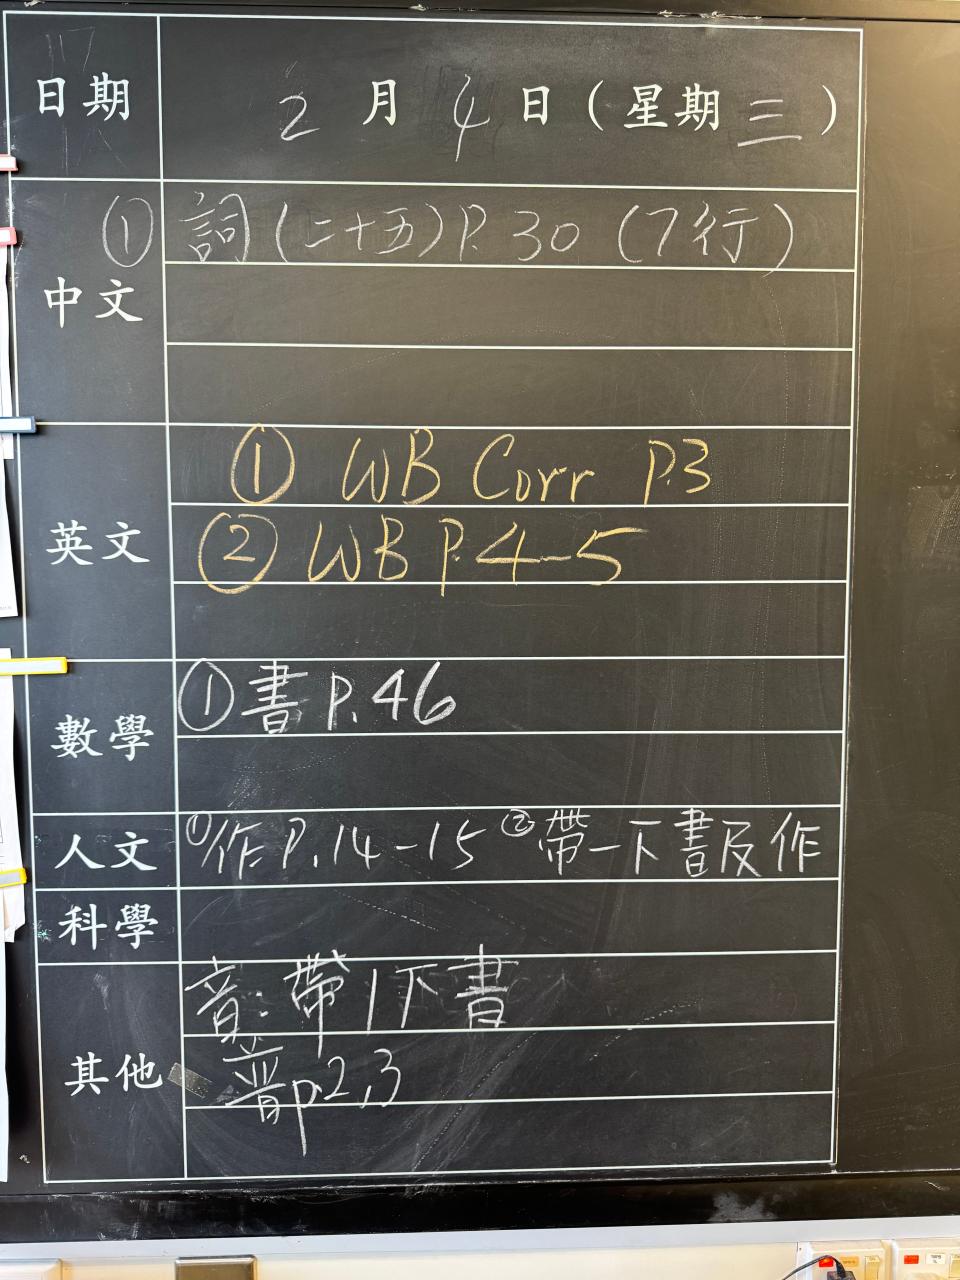 日期 2 月 4 日 ( 星期 三 )
① 詞(二十五)P.30 (7行)
中文
① WB Corr P.3
英文 ② WB P.4-5
① 書 P.46
數學
人文 ①作 P.14-15 ②帶一下書及作
科學
音:帶1下書
其他 普p.2,3